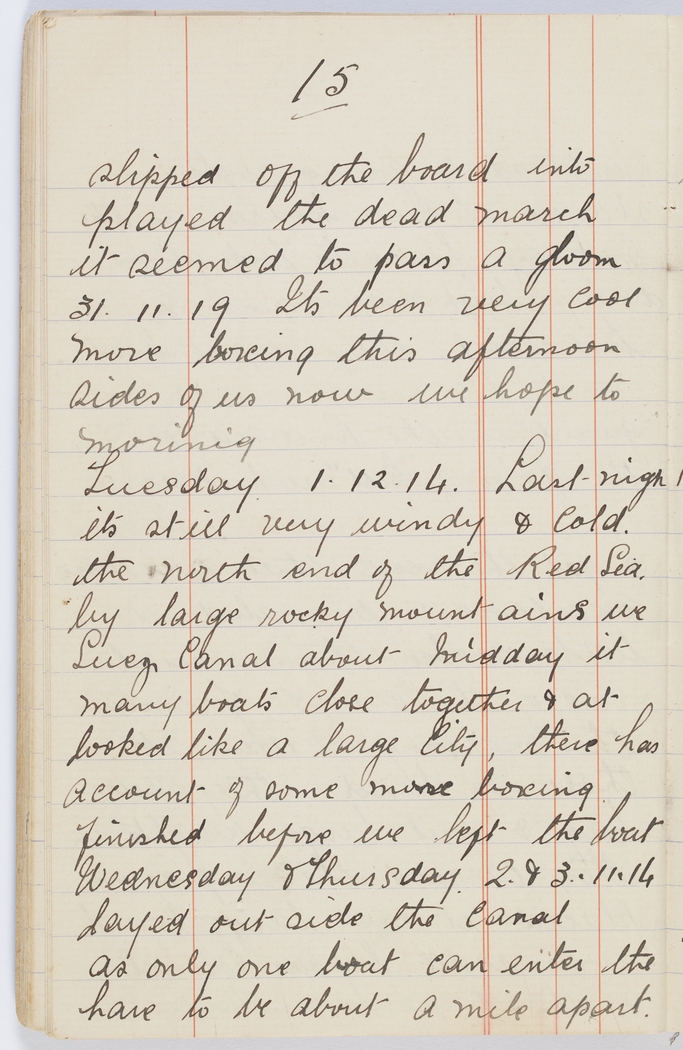 15
slipped off the board into
played the dead march
it seemed to pass a gloom
31. 11. 19 Its been very cool
more boxing this afternoon
sides of us now we hope to
morinig
Tuesday 1.12.14. Last-nigh
its still very windy & cold.
the north end of the Red Sea.
by large rocky mountains we
Suez Canal about midday it
many boats close together & at
looked like a large City, there has
account of some more boxing
finished before we left the boat
Wednesday & Thursday. 2. & 3. 11.14
layed out side the Canal
as only one boat can enter the
have to be about a mile apart.